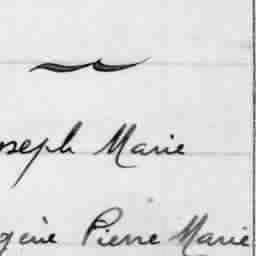 oseph Marie
gène Pierre Marie